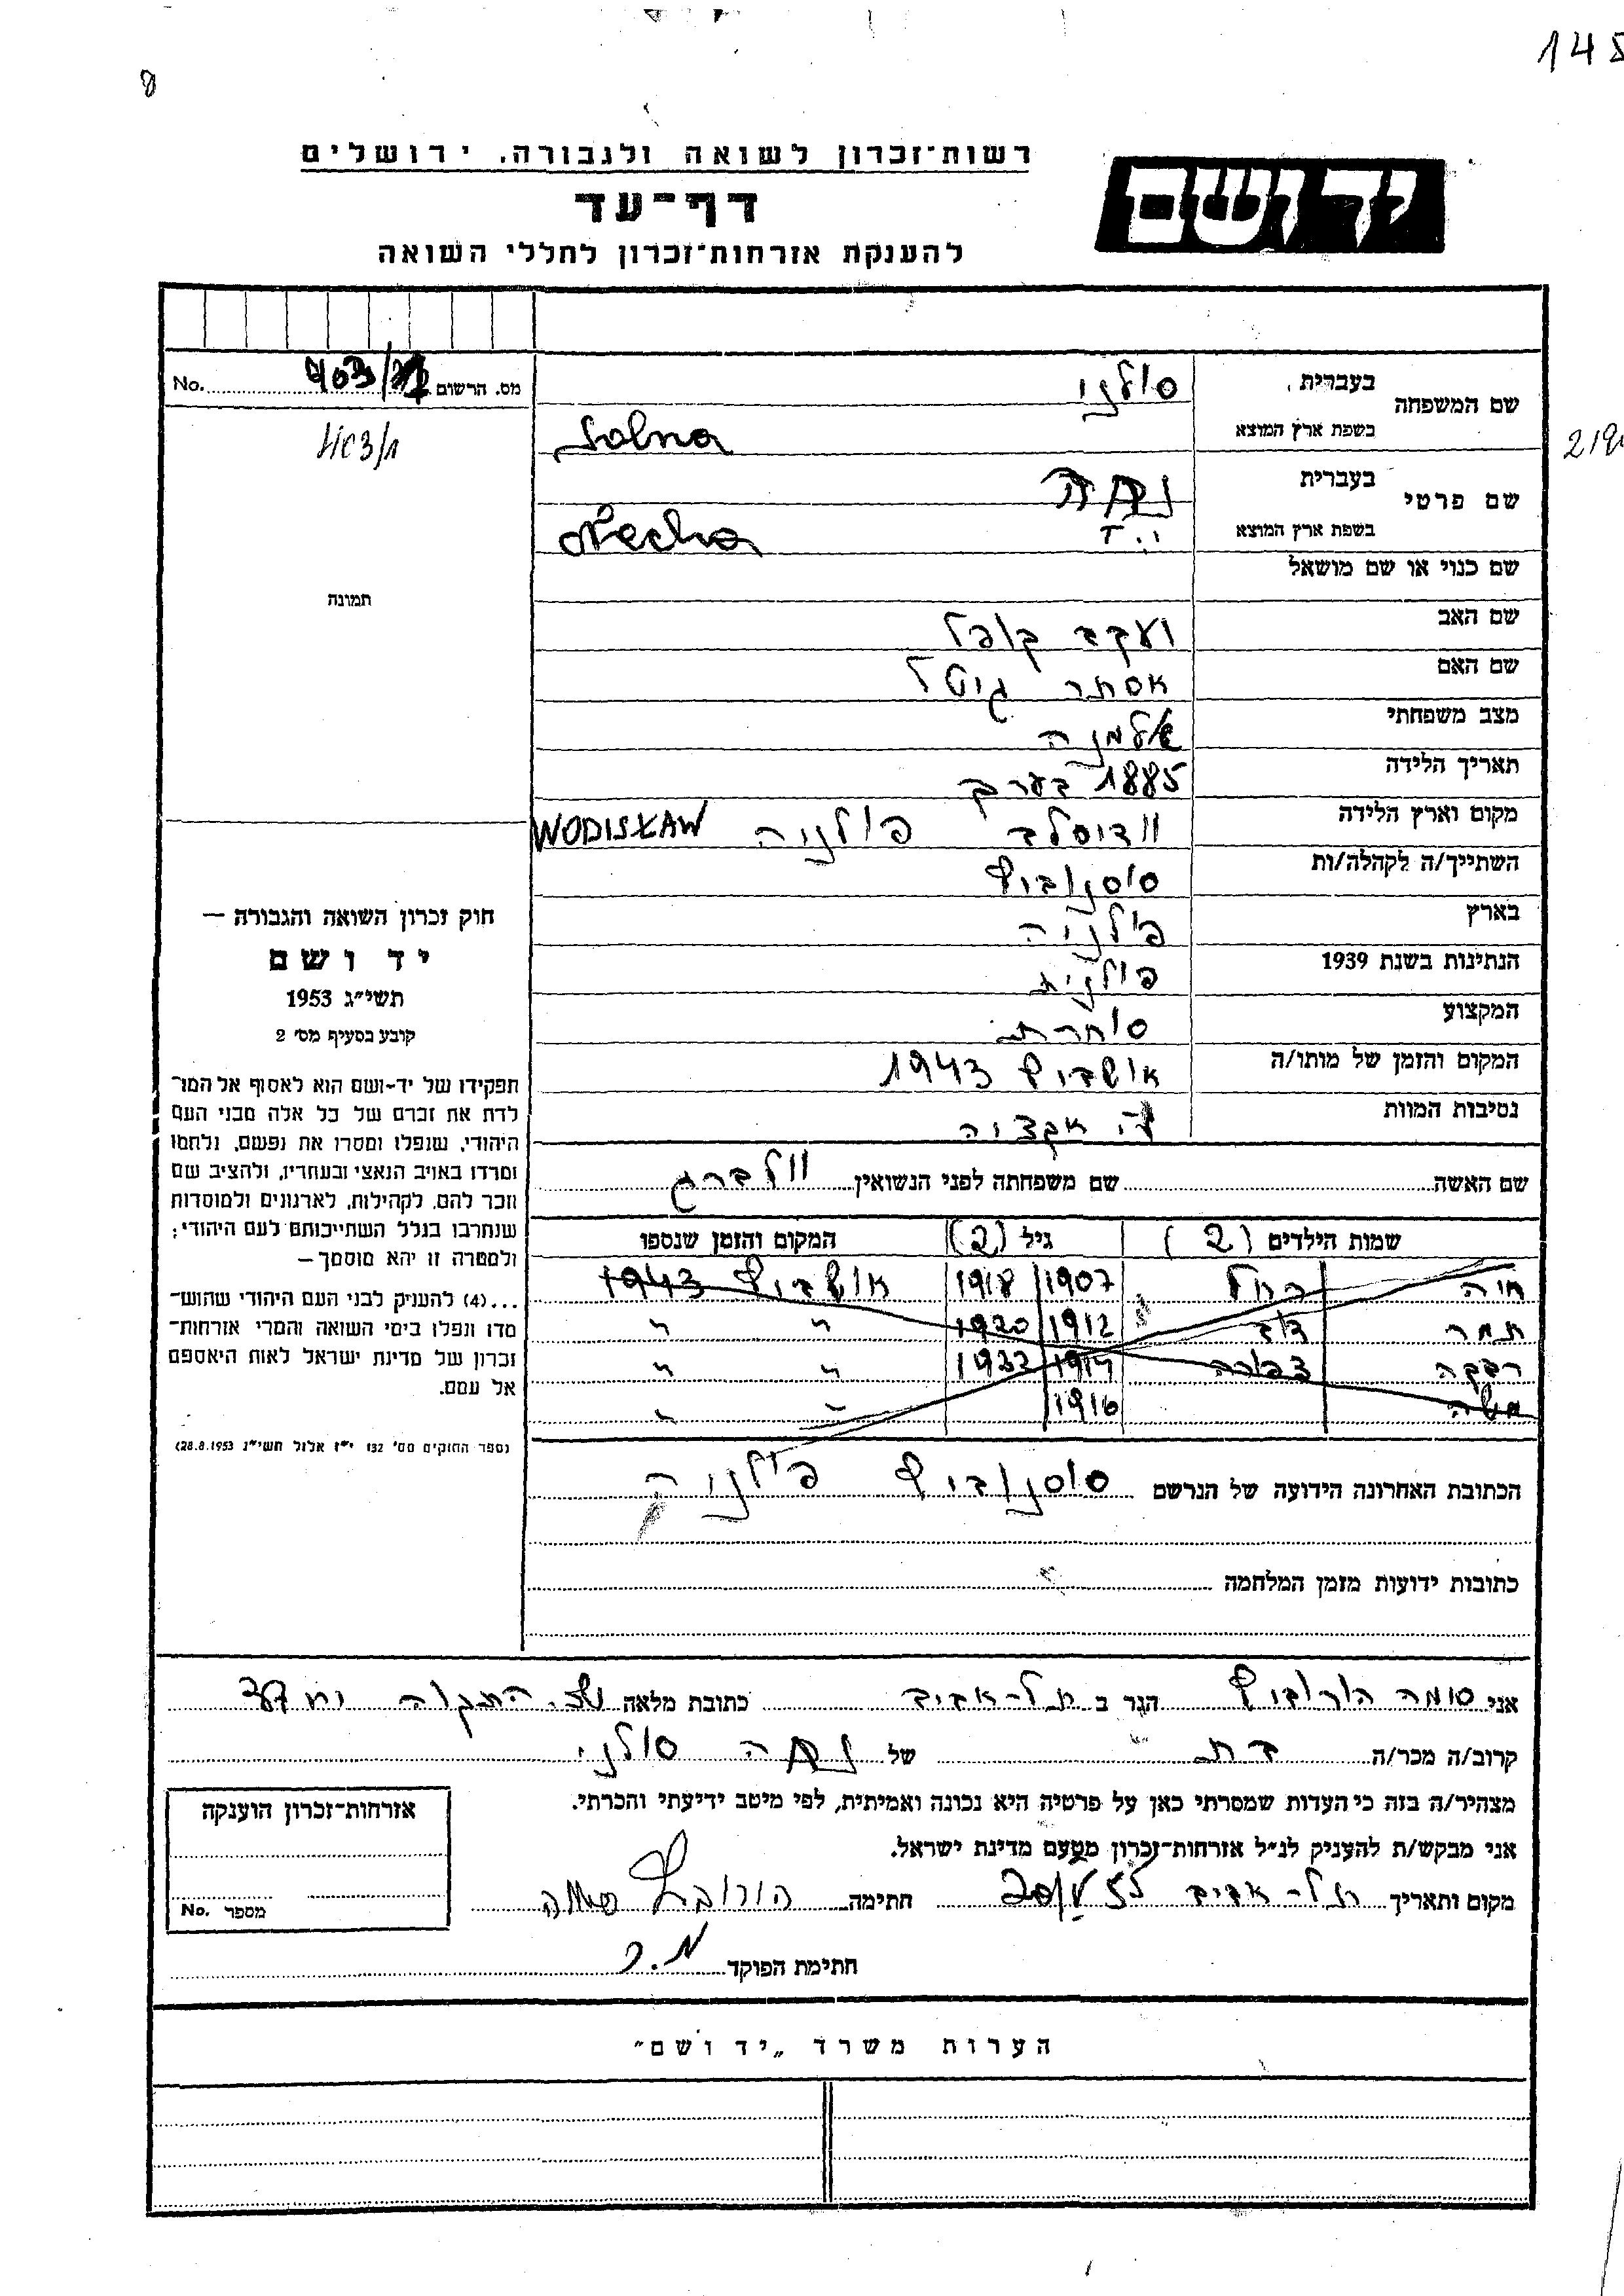 145
רשות־זכרון לשואה ולגבורה, ירושלים
יד ושם
דף־עד
להענקת אזרחות־זכרון לחללי השואה
מס. הרשום No.
403/1
שם המשפחה
בעברית סולני
בשפת ארץ המוצא Solna
שם פרטי
בעברית נחה
בשפת ארץ המוצא Necha
שם כנוי או שם מושאל
תמונה
שם האב יעקב קופל
שם האם אסתר גיטל
מצב משפחתי אלמנה
תאריך הלידה 1885 בערך
מקום וארץ הלידה וודיסלב פולניה WODISŁAW
השתייך/ה לקהלה/ות סוסנוביץ
בארץ פולניה
הנתינות בשנת 1939 פולנית
המקצוע סוחרת
המקום והזמן של מותו/ה אושביץ 1943
נסיבות המוות ע״י אקציה
שם האשה שם משפחתה לפני הנשואין וולברג
שמות הילדים (2) גיל (2) המקום והזמן שנספו
חיה רחל 1907 1918 אושביץ 1943
תמר דוד 1912 1920 " "
רבקה צפורה 1914 1922 " "
משה 1916 " "
הכתובת האחרונה הידועה של הנרשם סוסנוביץ פולניה
כתובות ידועות מזמן המלחמה
חוק זכרון השואה והגבורה —
יד ושם
תשי״ג 1953
קובע בסעיף מס׳ 2
תפקידו של יד-ושם הוא לאסוף אל המו־
לדת את זכרם של כל אלה מבני העם
היהודי, שנפלו ומסרו את נפשם, נלחמו
ומרדו באויב הנאצי ובעוזריו, ולהציב שם
וזכר להם, לקהילות, לארגונים ולמוסדות
שנחרבו בגלל השתייכותם לעם היהודי;
ולמטרה זו יהא מוסמך —
...(4) להעניק לבני העם היהודי שהוש־
מדו ונפלו בימי השואה והמרי אזרחות־
זכרון של מדינת ישראל לאות היאספם
אל עמם.
(ספר החוקים מס׳ 132 י״ז אלול תשי״ג 28.8.1953)
אני סומה הורוביץ הגר ב תל-אביב כתובת מלאה התקוה
קרוב/ה מכר/ה בת של נחה סולני
מצהיר/ה בזה כי העדות שמסרתי כאן על פרטיה היא נכונה ואמיתית, לפי מיטב ידיעתי והכרתי.
אני מבקש/ת להעניק לנ״ל אזרחות־זכרון מטעם מדינת ישראל.
מקום ותאריך תל-אביב חתימה הורוביץ סומה
חתימת הפוקד
אזרחות־זכרון הוענקה
מספר No.
הערות משרד „יד ושם״